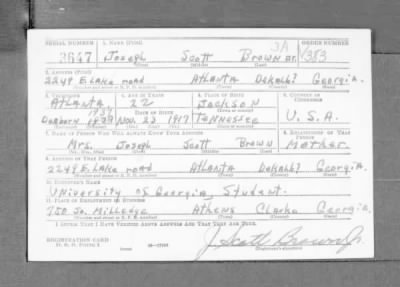 SERIAL NUMBER 1. NAME (Print) ORDER NUMBER
3A
3647 Joseph Scott Brown Jr. 1383
(First) (Middle) (Last)
2. ADDRESS (Print)
2249 E. Lake road Atlanta Dekalb Georgia
(Town) (County) (State)
3. TELEPHONE 4. AGE IN YEARS 5. PLACE OF BIRTH 6. COUNTRY OF CITIZENSHIP
Atlanta 22 Jackson
DATE OF BIRTH
Dearborn Nov. 23 1917 Tennessee U.S.A.
7. NAME OF PERSON WHO WILL ALWAYS KNOW YOUR ADDRESS 8. RELATIONSHIP OF THAT PERSON
Mrs. Joseph Scott Brown Mother
9. ADDRESS OF THAT PERSON
2249 E. Lake road Atlanta Dekalb Georgia
10. EMPLOYER'S NAME
University of Georgia, Student.
11. PLACE OF EMPLOYMENT OR BUSINESS
750 So. Milledge Athens Clarke Georgia.
I AFFIRM THAT I HAVE VERIFIED ABOVE ANSWERS AND THAT THEY ARE TRUE.
REGISTRATION CARD
D. S. S. Form 1
J. Scott Brown Jr.
(Registrant's signature)